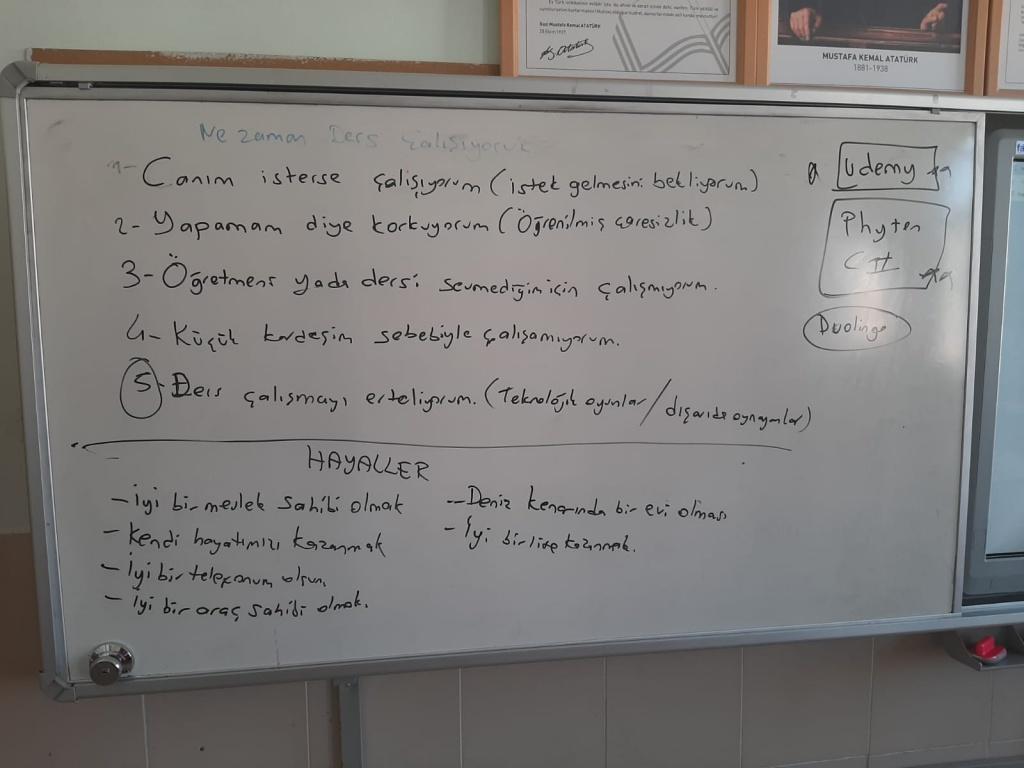 Gazi Mustafa Kemal ATATÜRK
K. Atatürk
MUSTAFA KEMAL ATATÜRK
1881-1938
Ne zaman Ders Çalışıyoruk
1- Canım isterse çalışıyorum (istek gelmesini bekliyorum)
2- Yapamam diye korkuyorum (Öğrenilmiş çaresizlik)
3- Öğretmeni yada dersi sevmediğim için çalışmıyorum.
4- Küçük kardeşim sebebiyle çalışamıyorum.
5- Ders çalışmayı erteliyorum. (Teknolojik oyunlar / dışarıda oynayanlar)
HAYALLER
- İyi bir meslek sahibi olmak
- Kendi hayatımızı kazanmak
- İyi bir telefonum olsun,
- İyi bir araç sahibi olmak.
- Deniz kenarında bir evi olması
- İyi bir lise kazanmak.
Udemy
Phyton
C#
Duolingo